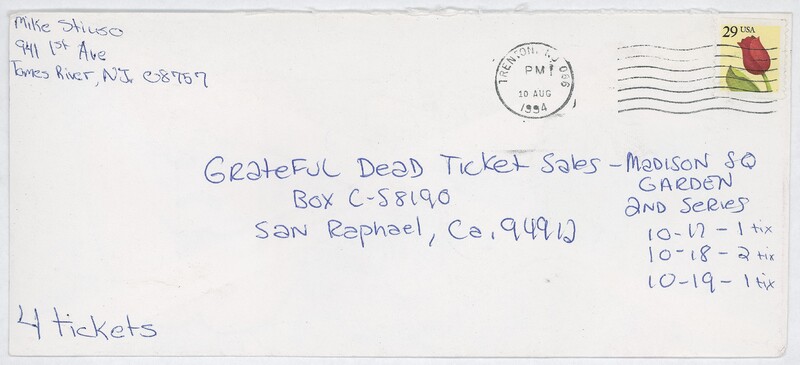 Mike Stiuso
941 1st Ave
Toms River, N.J. 08757
29 USA
TRENTON, NJ 086
PM
10 AUG
1994
Grateful Dead Ticket Sales - Madison SQ
Garden
Box C-S8190
2nd Series
San Raphael, Ca. 94912
10-17 - 1 tix
10-18 - 2 tix
10-19 - 1 tix
4 tickets